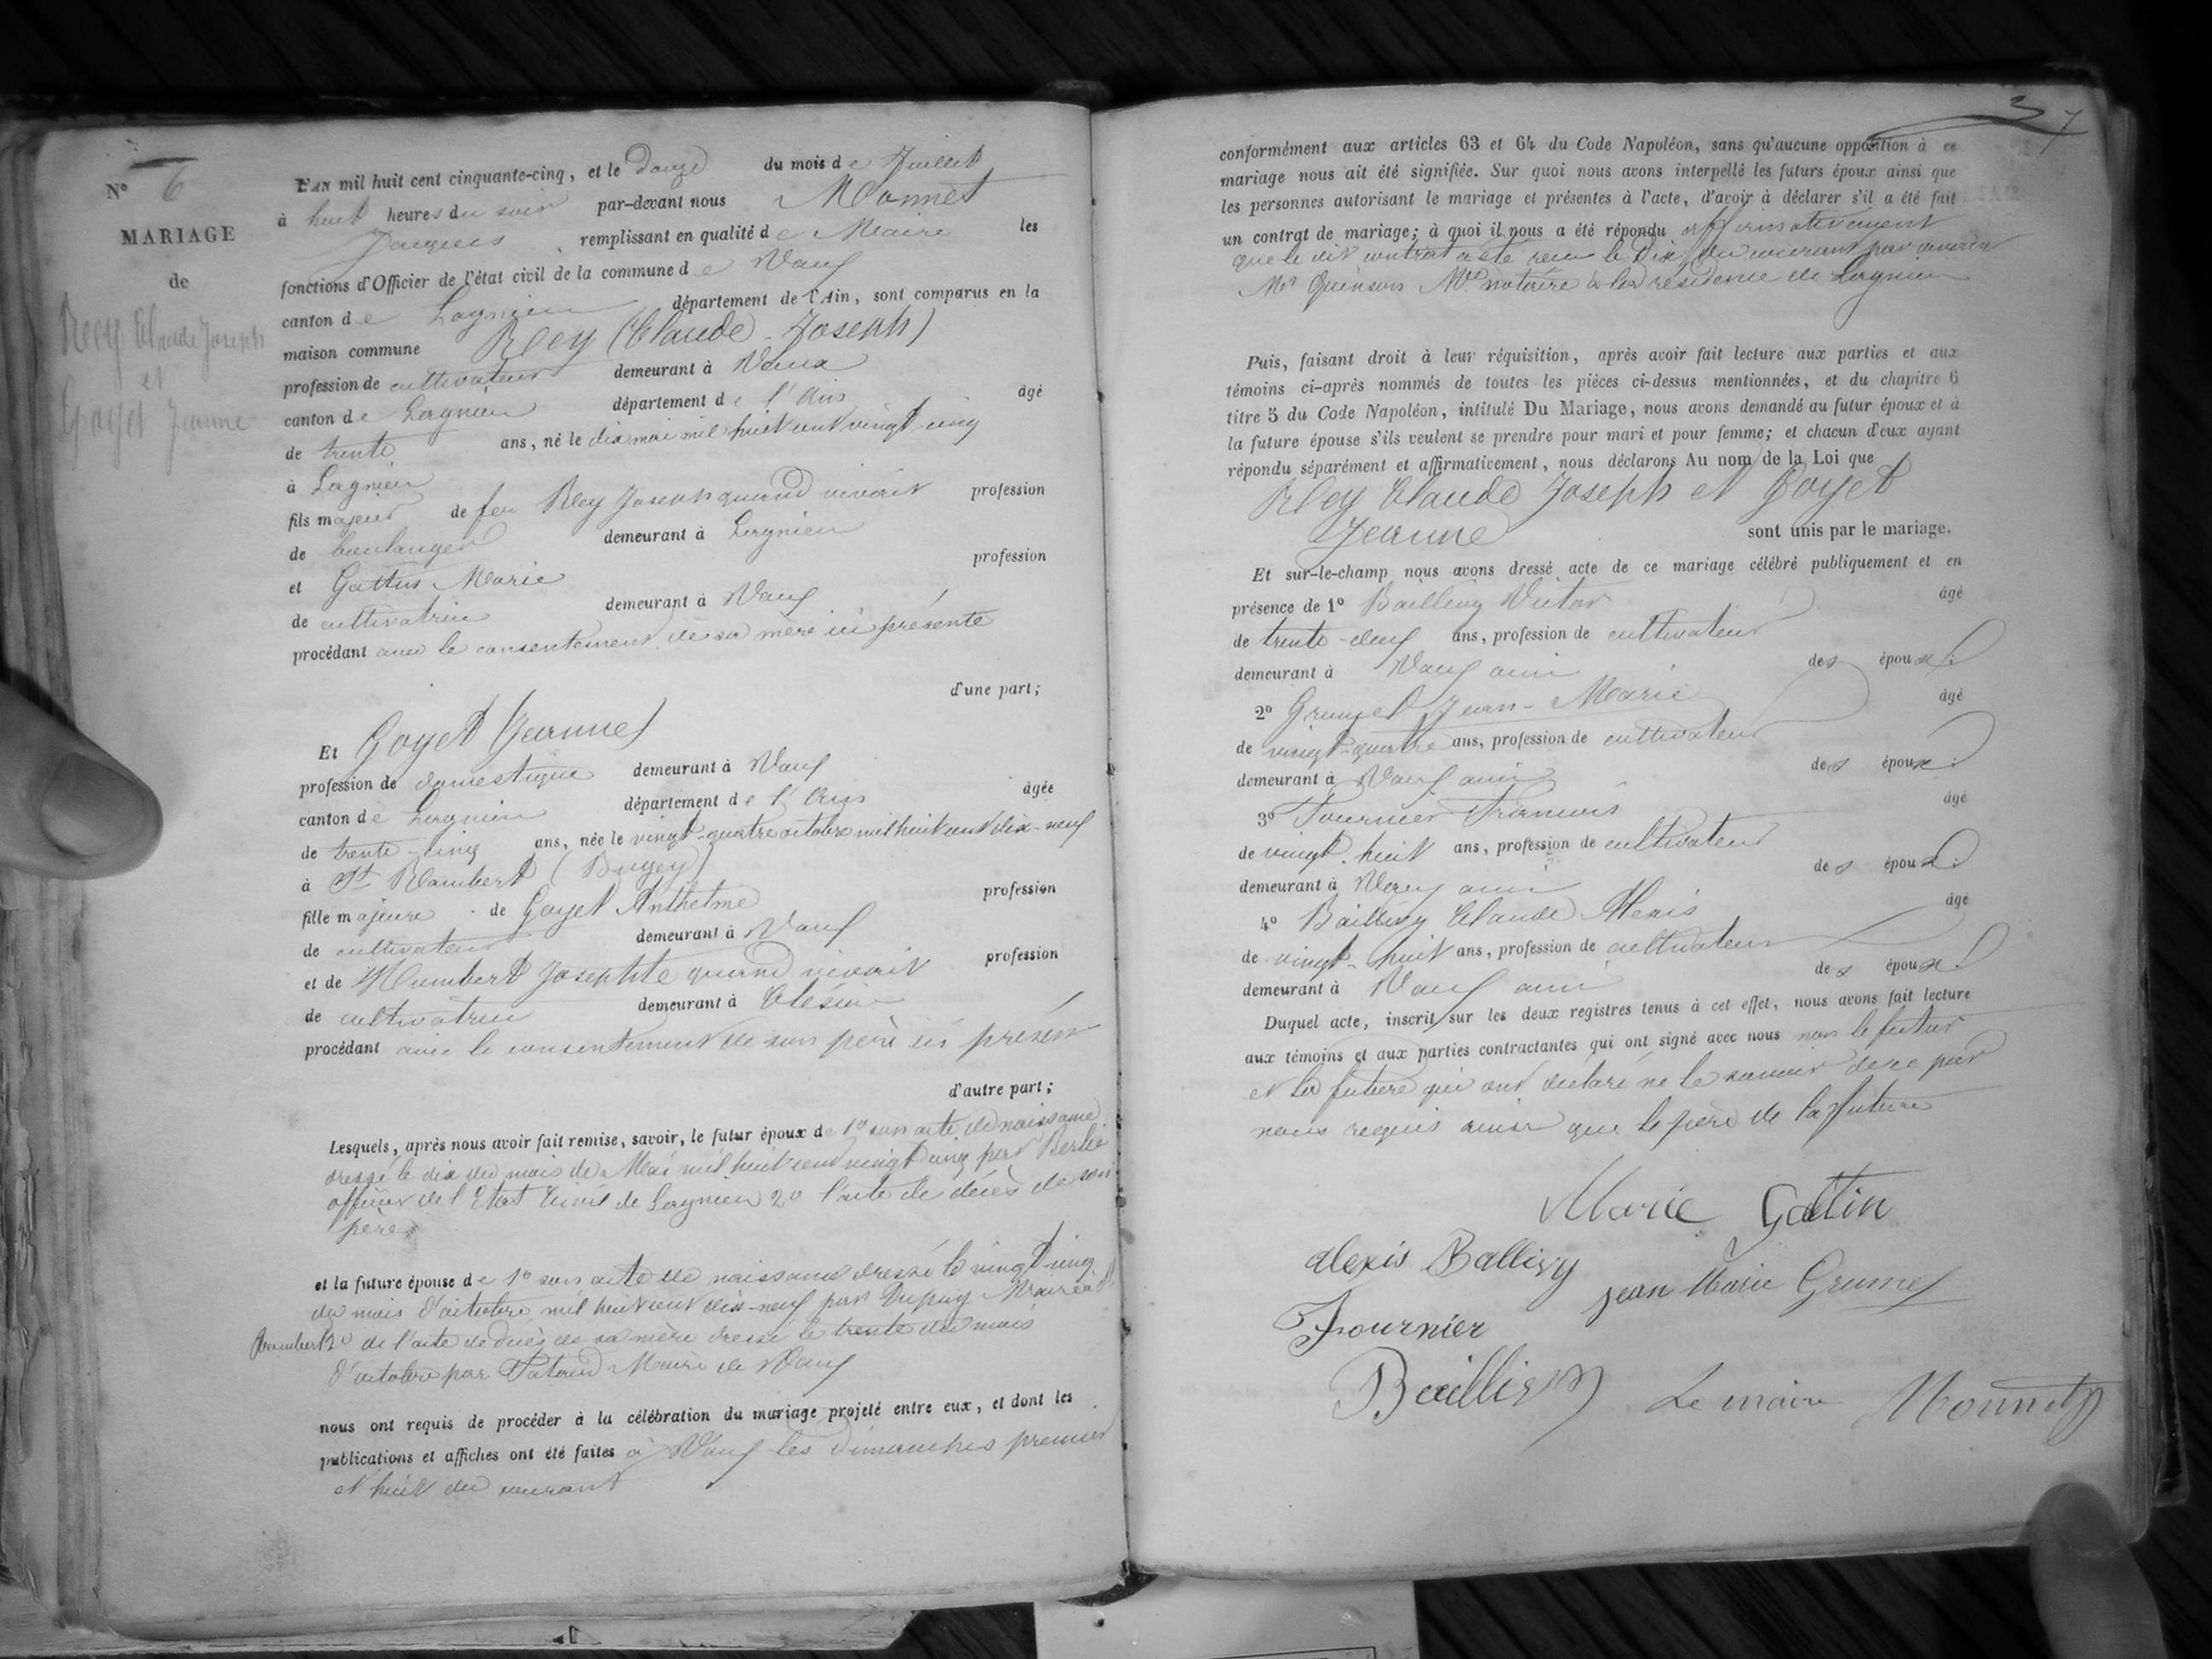 N° 6
MARIAGE
de
Rey Claude Joseph
et
Goyet Jeanne
L'AN mil huit cent cinquante-cinq, et le douze du mois de Juillet
à huit heures du soir par-devant nous Monnet
Jacques remplissant en qualité de Maire les
fonctions d'Officier de l'état civil de la commune de Vaux
canton de Lagnieu département de l'Ain, sont comparus en la
maison commune Rey (Claude-Joseph)
profession de cultivateur demeurant à Vaux
canton de Lagnieu département de l'Ain âgé
de trente ans, né le dix mai mil huit cent vingt cinq
à Lagnieu
fils majeur de feu Rey Joseph quand vivait profession
de boulanger demeurant à Lagnieu
et Marie profession
de cultivatrice demeurant à Vaux
procédant avec le consentement de sa mère ici présente
d'une part;
Et Goyet (Jeanne)
profession de domestique demeurant à Vaux
canton de Lagnieu département de l'Ain âgée
de trente-cinq ans, née le vingt-quatre octobre mil huit cent dix-neuf
à St Rambert (Bugey)
fille majeure de Goyet Anthelme profession
de cultivateur demeurant à Vaux
et de Humbert Josephte quand vivait profession
de cultivatrice demeurant à
procédant avec le consentement de son père ici présent
d'autre part;
Lesquels, après nous avoir fait remise, savoir, le futur époux de 1° son acte de naissance
dressé le dix du mois de Mai mil huit cent vingt cinq par
officier de l'Etat Civil de Lagnieu 2° l'acte de décès de son
père
et la future épouse de 1° son acte de naissance dressé le vingt-cinq
du mois d'octobre mil huit cent dix-neuf par Dupuy Maire à St
Rambert 2° de l'acte de décès de sa mère dressé le trente du mois
d'octobre par Maire de Vaux
nous ont requis de procéder à la célébration du mariage projeté entre eux, et dont les
publications et affiches ont été faites à Vaux les dimanches premier
et huit du courant
37
conformément aux articles 63 et 64 du Code Napoléon, sans qu'aucune opposition à ce
mariage nous ait été signifiée. Sur quoi nous avons interpellé les futurs époux ainsi que
les personnes autorisant le mariage et présentes à l'acte, d'avoir à déclarer s'il a été fait
un contrat de mariage; à quoi il nous a été répondu affirmativement
que le dit contrat a été reçu le dix du courant par
Me Quinson notaire à la résidence de Lagnieu
Puis, faisant droit à leur réquisition, après avoir fait lecture aux parties et aux
témoins ci-après nommés de toutes les pièces ci-dessus mentionnées, et du chapitre 6
titre 5 du Code Napoléon, intitulé Du Mariage, nous avons demandé au futur époux et à
la future épouse s'ils veulent se prendre pour mari et pour femme; et chacun d'eux ayant
répondu séparément et affirmativement, nous déclarons Au nom de la Loi que
Rey Claude Joseph et Goyet
Jeanne sont unis par le mariage.
Et sur-le-champ nous avons dressé acte de ce mariage célébré publiquement et en
présence de 1° Baillivy Victor âgé
de trente-deux ans, profession de cultivateur
demeurant à Vaux ami des époux.
2° Grumet Jean-Marie âgé
de vingt-quatre ans, profession de cultivateur
demeurant à Vaux ami des époux.
3° Fournier François âgé
de vingt-huit ans, profession de cultivateur
demeurant à Vaux ami des époux.
4° Baillivy Claude Alexis âgé
de vingt-huit ans, profession de cultivateur
demeurant à Vaux ami des époux.
Duquel acte, inscrit sur les deux registres tenus à cet effet, nous avons fait lecture
aux témoins et aux parties contractantes qui ont signé avec nous non le futur
et la future qui ont déclaré ne le savoir de ce par
nous requis ainsi que le père de la future
Marie Gattin
alexis Ballivy
jean Marie Grumet
Fournier
Baillivy
Le maire Monnet